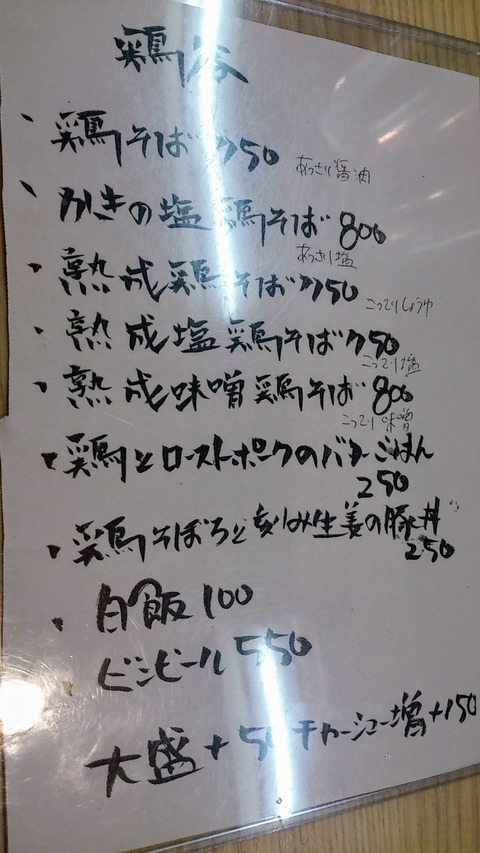 鶏谷
・鶏そば 750
あっさり醤油
・かきの塩鶏そば 800
あっさり塩
・熟成鶏そば 750
こってりしょうゆ
・熟成塩鶏そば 750
こってり塩
・熟成味噌鶏そば 800
こってり味噌
・鶏とローストポークのバターごはん
250
・鶏そぼろと刻み生姜の豚丼
250
・白飯 100
ビンビール 550
大盛+50 チャーシュー増+150